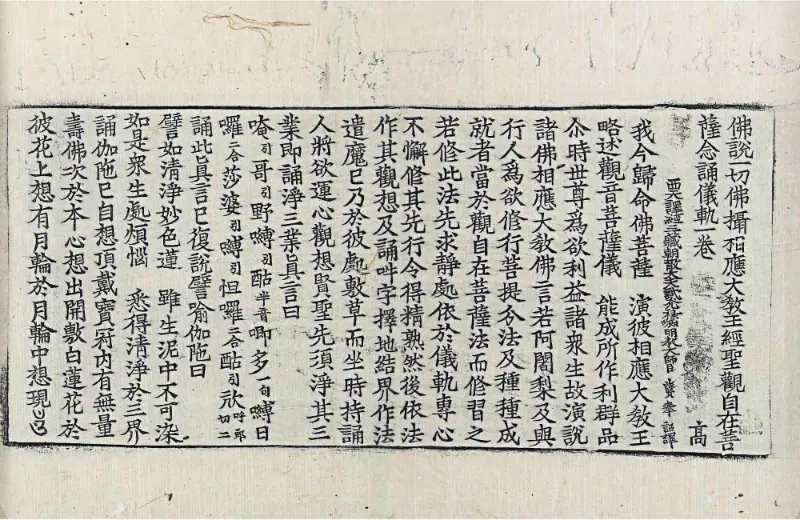 佛說一切佛攝相應大教王經聖觀自在菩
薩念誦儀軌一卷 高
西天譯經三藏朝散大夫試光祿卿明教大師臣法賢奉 詔譯
我今歸命佛菩薩 演彼相應大教王
略述觀音菩薩儀 能成所作利群品
尒時世尊爲欲利益諸衆生故演說
諸佛相應大教佛言若阿闍梨及與
行人爲欲修行菩提分法及種種成
就者當於觀自在菩薩法而修習之
若修此法先求静處依於儀軌專心
不懈修其先行令得精熟然後依法
作其觀想及誦吽字擇地結界作法
遣魔已乃於彼處敷草而坐時持誦
人將欲運心觀想賢聖先須淨其三
業即誦淨三業眞言曰
唵引哥引野嚩引酤半音唧多一句嚩日
囉二合莎婆引嚩引怛囉二合酤引㰠呼郎切二
誦此眞言已復說譬喻伽陁曰
譬如清淨妙色蓮 雖生泥中不可染
如是衆生處煩惱 悉得清淨於三界
誦伽陁已自想頂戴寶冠內有無量
壽佛次於本心想出開敷白蓮花於
彼花上想有月輪於月輪中想現